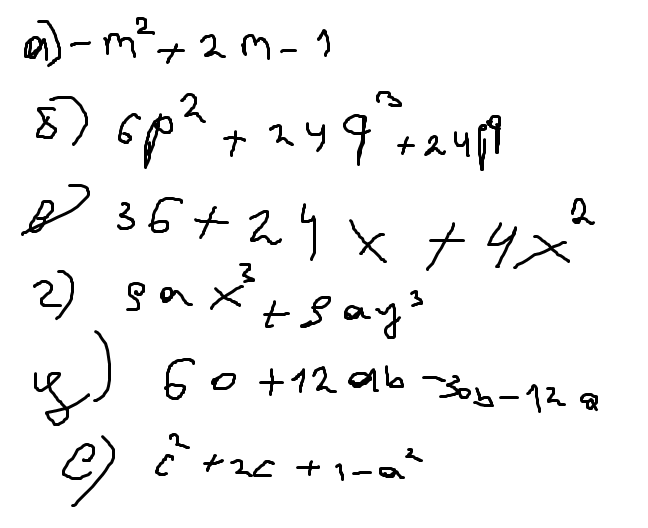 а) -m² + 2m - 1
б) 6p² + 24q³ + 24pq
в) 36 + 24x + 4x²
г) 9ax³ + 9ay³
д) 60 + 12ab - 30b - 12a
е) c² + 2c + 1 - a²